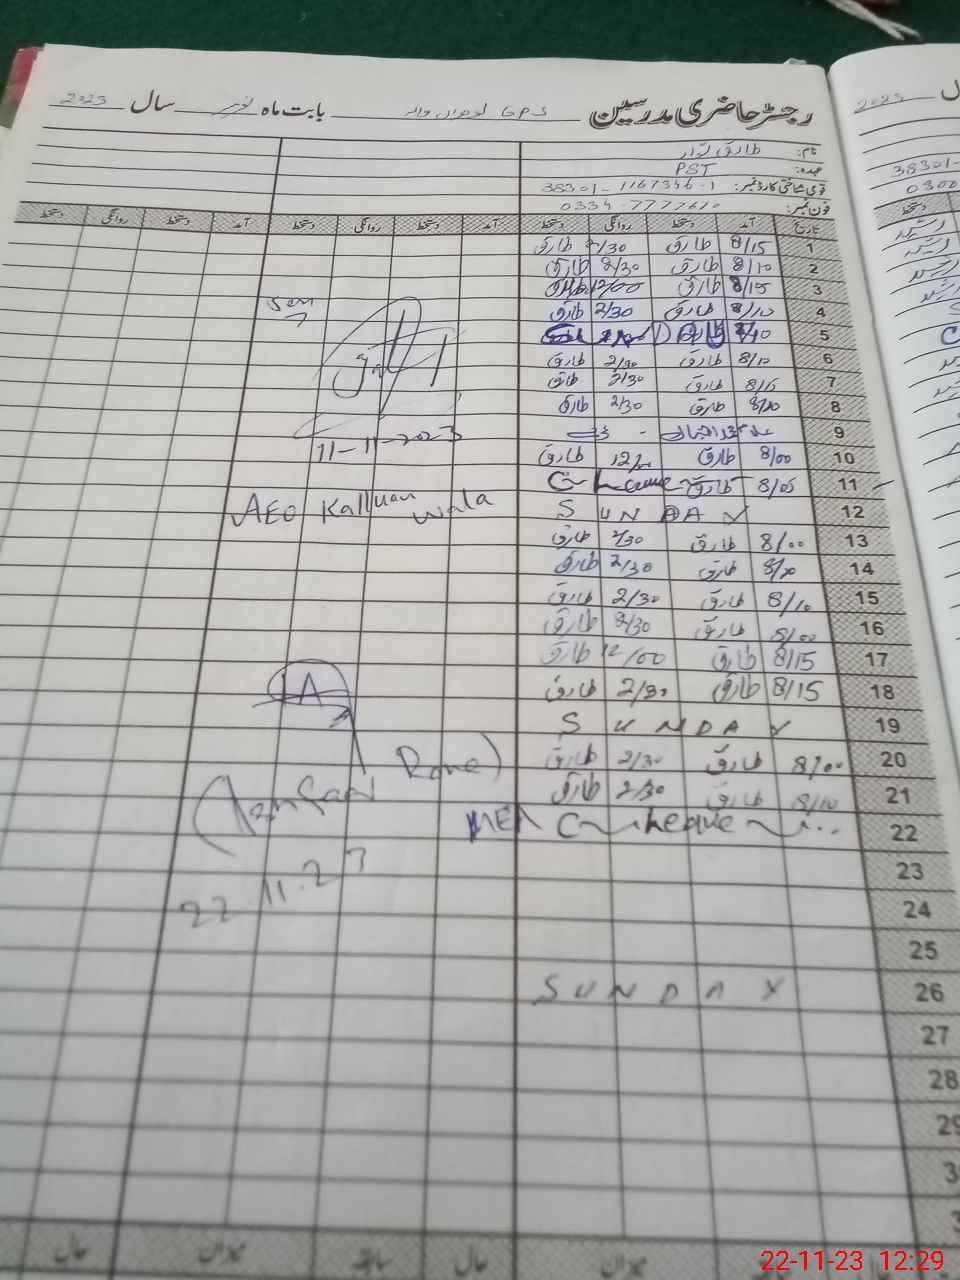 رجسٹر حاضری مدرسین GPS بابت ماہ نومبر سال 2023
نام: طارق
عہدہ: PST
قومی شناختی کارڈ نمبر: 38301-1167346-1
فون نمبر: 0334-7777610
تاریخ آمد دستخط روانگی دستخط آمد دستخط روانگی دستخط آمد دستخط روانگی دستخط
1 8/15 طارق 2/30 طارق
2 8/10 طارق 2/30 طارق
3 8/15 طارق 12/00 طارق
4 8/10 طارق 2/30 طارق
5
6 8/10 طارق 2/30 طارق
7 8/15 طارق 2/30 طارق
8 طارق 2/30 طارق
9
10 8/00 طارق طارق
11 8/05 طارق
12 SUNDAY
13 8/00 طارق 2/30 طارق
14 طارق 2/30 طارق
15 8/10 طارق 2/30 طارق
16 8/00 طارق 2/30 طارق
17 8/15 طارق 12/00 طارق
18 8/15 طارق 2/30 طارق
19 SUNDAY
20 8/00 طارق 2/30 طارق
21 8/10 طارق 2/30 طارق
22
23
24
25
26 SUNDAY
27
28
29
11-11-2023
AEO Kalluan wala
MEA
22.11.23
حال میزان سابقہ حال میزان
2023
38301-
0300
دستخط
22-11-23 12:29